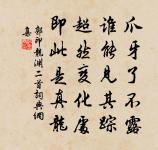 爪牙了不露
誰能見其踪
超然變化處
即此是真龍
郭印龍淵二首詞典網
集